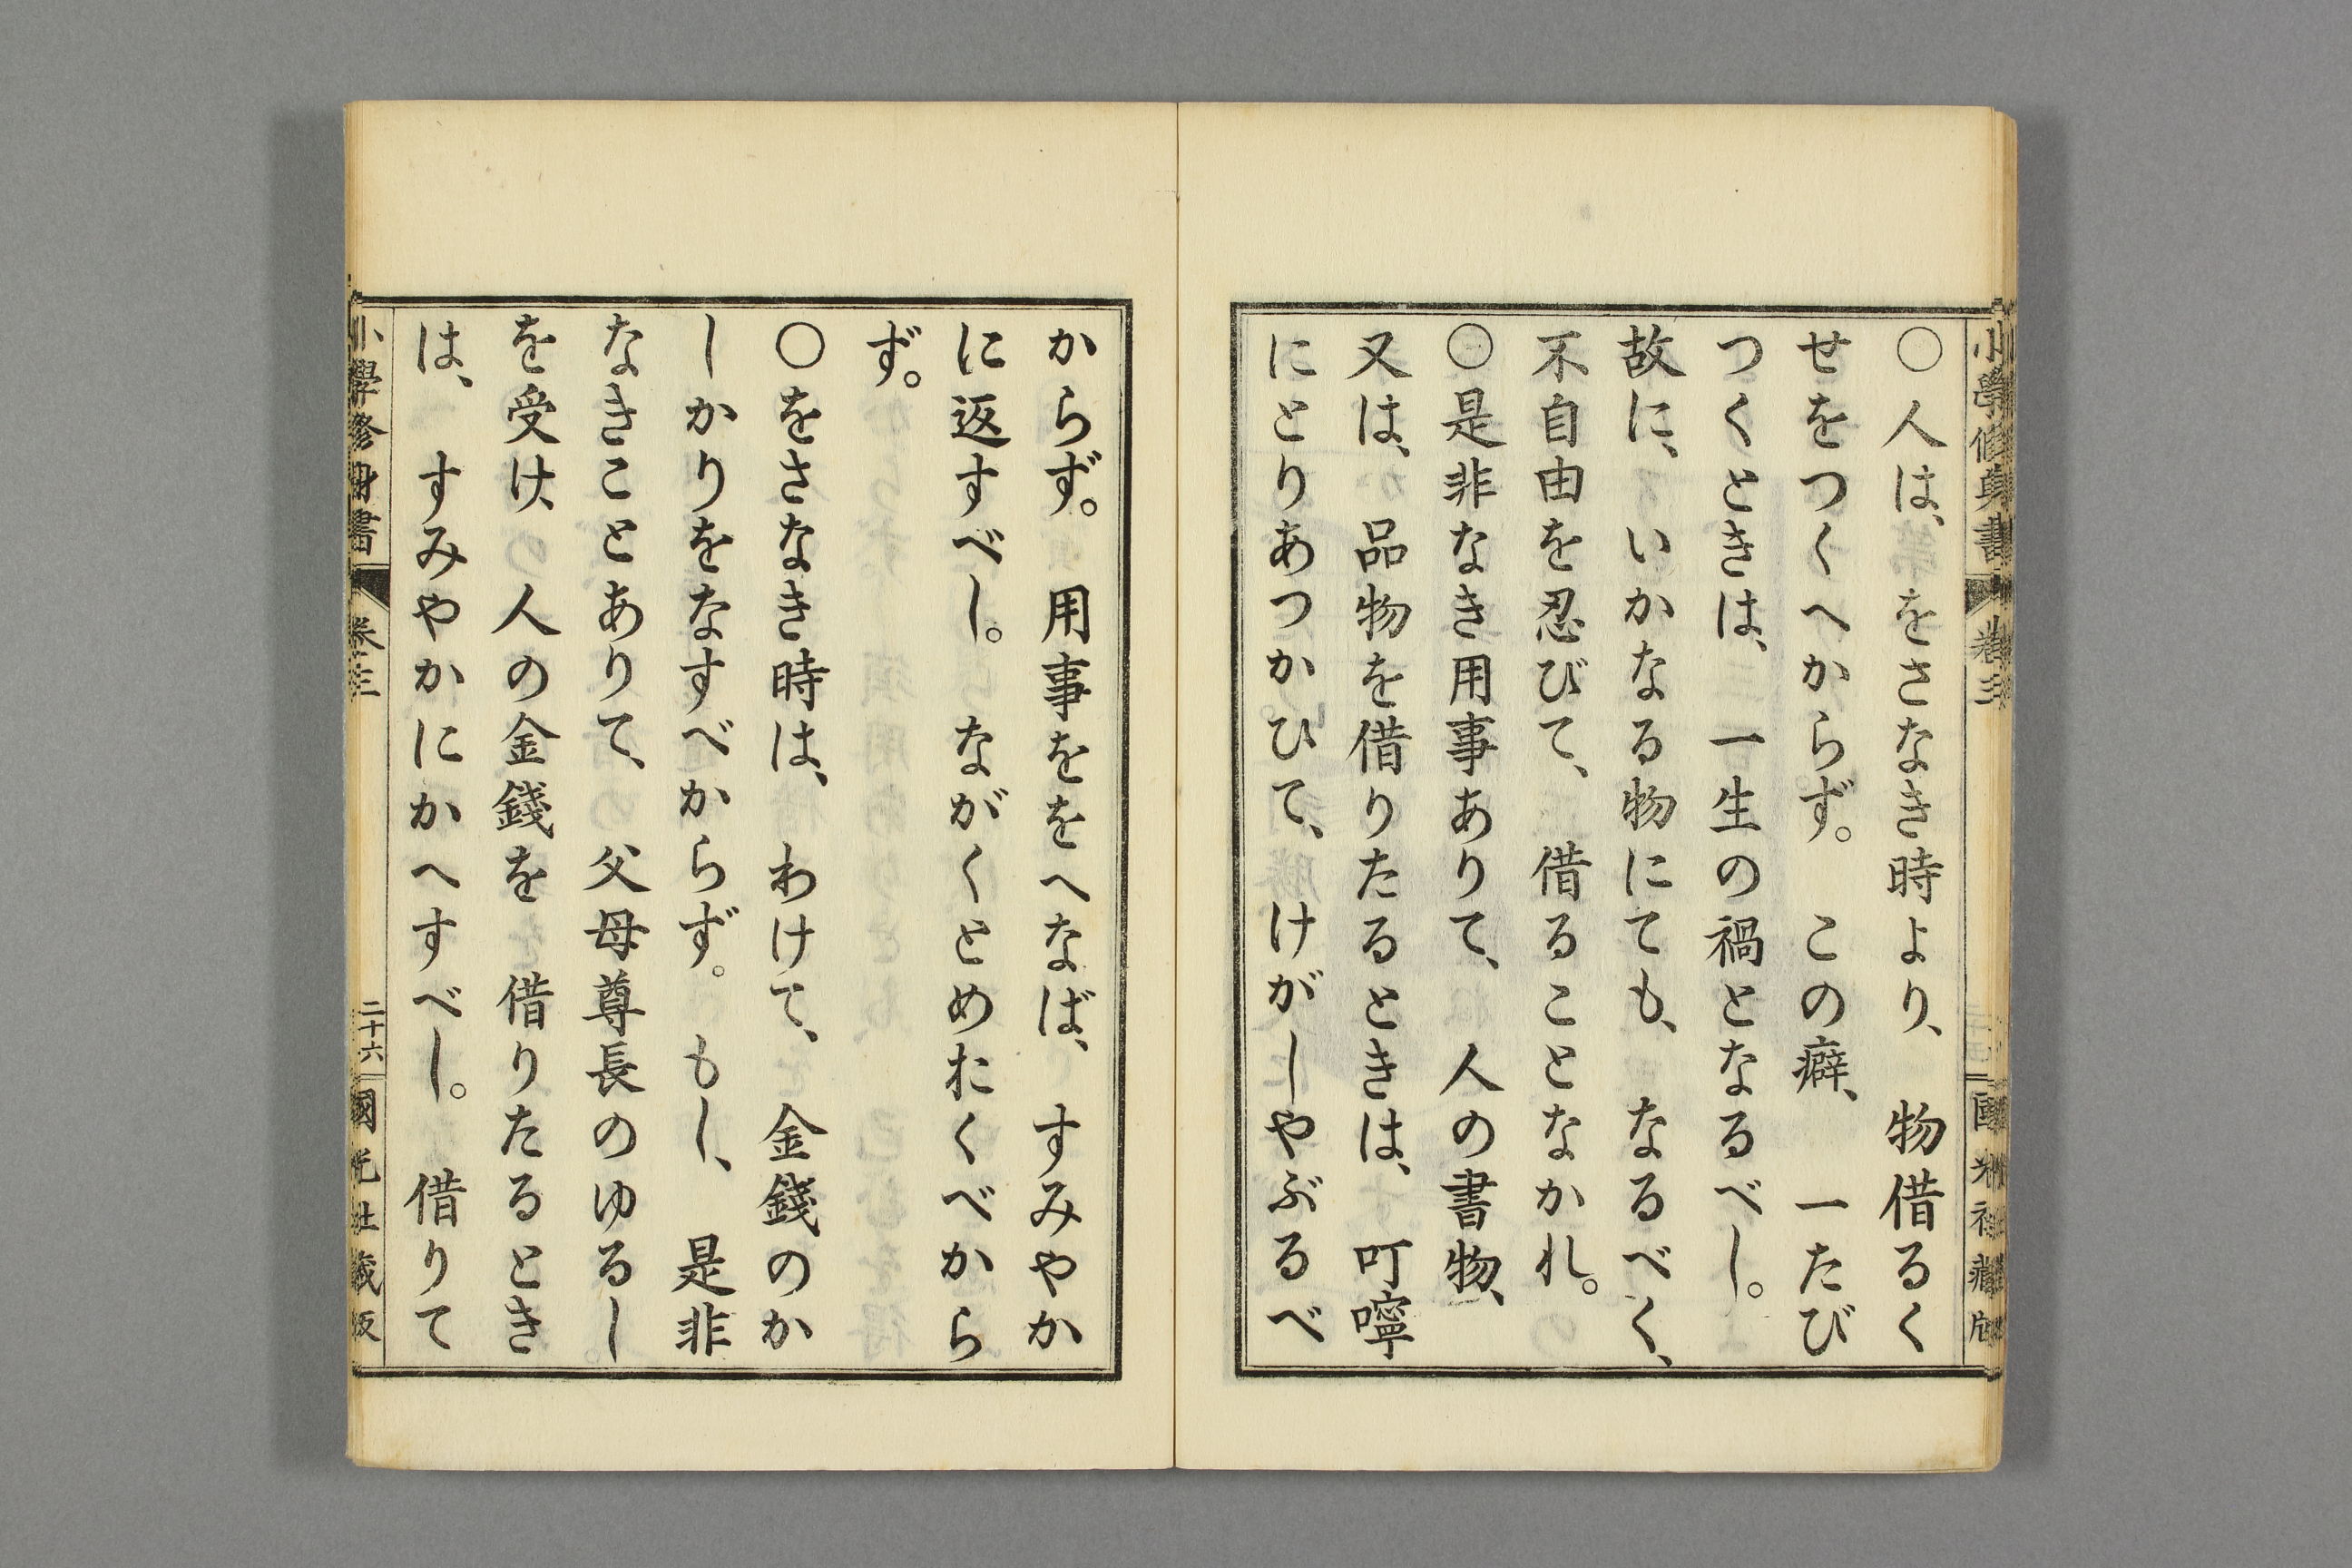 小學修身書 卷三 國光社藏版
○人は、をさなき時より、物借るく
せをつくへからず。この癖、一たび
つくときは、一生の禍となるべし。
故に、いかなる物にても、なるべく、
不自由を忍びて、借ることなかれ。
○是非なき用事ありて、人の書物、
又は、品物を借りたるときは、叮嚀
にとりあつかひて、けがしやぶるべ
からず。用事ををへなば、すみやか
に返すべし。ながくとめおくべから
ず。
○をさなき時は、わけて、金錢のか
しかりをなすべからず。もし、是非
なきことありて、父母尊長のゆるし
を受け、人の金錢を借りたるとき
は、すみやかにかへすべし。借りて
小學修身書 卷三 二十六 國光社藏版